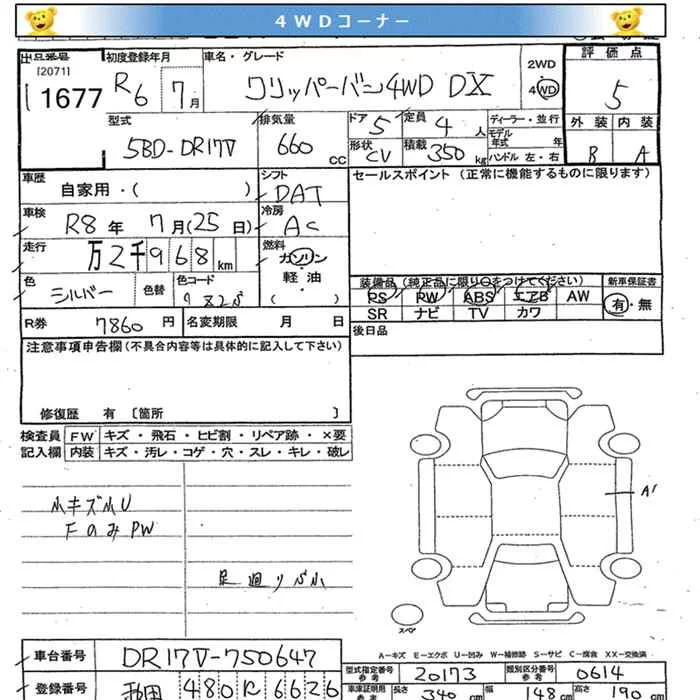 4WDコーナー
出品番号 初度登録年月 車名・グレード 2WD 評価点
[2071]
1677 R6 7月 クリッパーバン4WD DX 4WD 5
型式 排気量 ドア 5 定員 4人 ディーラー・並行 外装 内装
モデル年式 年
5BD-DR17V 660cc 形状 CV 積載 350kg ハンドル 左・右 B A
車歴 シフト セールスポイント (正常に機能するものに限ります)
自家用・( ) DAT
車検 R8年 7月(25日) 冷房 AC
走行 万2千968km 燃料 ガソリン
軽・油
( )
色 シルバー 色替 色コード 装備品(純正品に限り○をつけてください) 新車保証書
PS PW ABS エアB AW 有・無
SR ナビ TV カワ
R券 7860円 名変期限 月 日 後日品
注意事項申告欄(不具合内容等は具体的に記入して下さい)
修復歴 有 〔箇所 〕
検査員記入欄 FW キズ・飛石・ヒビ割・リペア跡・×要
内装 キズ・汚レ・コゲ・穴・スレ・キレ・破レ
小キズ小U
FのみPW
A1
足廻りサビ小
スペア
A-キズ E-エクボ U-凹み W-補修跡 S-サビ C-腐食 XX-交換済
車台番号 DR17V-750647 型式指定番号 参考 20173 類別区分番号 参考 0614
登録番号 480 6626 車庫証明用 参考 長さ 340cm 幅 148cm 高さ 190cm